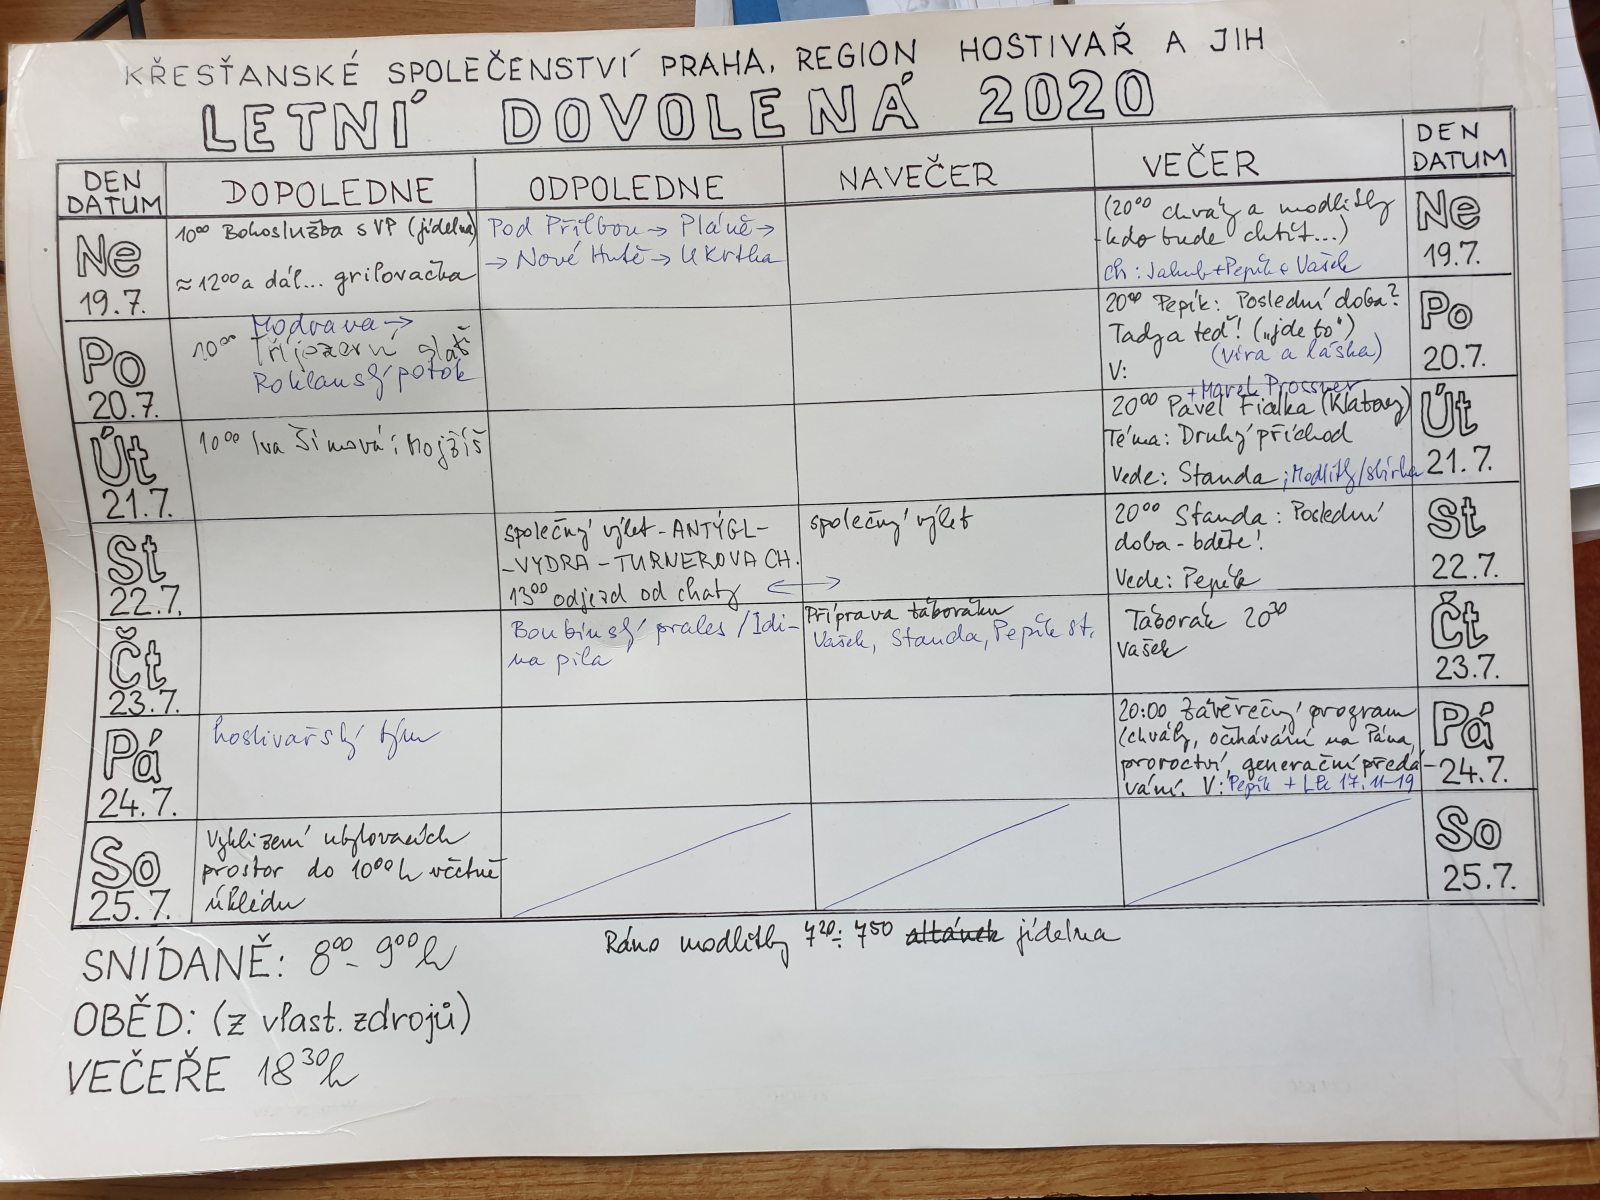 KŘESŤANSKÉ SPOLEČENSTVÍ PRAHA, REGION HOSTIVAŘ A JIH
LETNÍ DOVOLENÁ 2020
DEN
DATUM
DOPOLEDNE
ODPOLEDNE
NAVEČER
VEČER
DEN
DATUM
Ne
19.7.
10⁰⁰ Bohoslužba s VP (jídelna)
≈ 12⁰⁰ a dál... grilovačka
Pod Přilbou → Pláně →
→ Nové Hutě → U Krtka
(20⁰⁰ chvály a modlitby
- kdo bude chtít...)
Ch: Jakub + Pepík + Vašek
Ne
19.7.
Po
20.7.
Modrava →
10⁰⁰ Tříjezerní slať
Roklanský potok
20⁰⁰ Pepík: Poslední doba?
Tady a teď! („jde to")
(víra a láska)
V:
Po
20.7.
Út
21.7.
10⁰⁰ Iva Šímová: Mojžíš
+ Marek Prossner
20⁰⁰ Pavel Fialka (Klatovy)
Téma: Druhý příchod
Vede: Standa ; Modlitby/sbírka
Út
21.7.
St
22.7.
společný výlet - ANTÝGL -
- VYDRA - TURNEROVA CH.
13⁰⁰ odjezd od chaty ↔
společný výlet
20⁰⁰ Standa : Poslední
doba - bděte!
Vede: Pepík
St
22.7.
Čt
23.7.
Boubínský prales / Idi-
na pila
Příprava táboráku
Vašek, Standa, Pepík st.
Táborák 20³⁰
Vašek
Čt
23.7.
Pá
24.7.
hostivařský tým
20:00 Závěrečný program
(chvály, očekávání na Pána,
proroctví, generační předá-
vání. V: Pepík + Lk 17, 11-19
Pá
24.7.
So
25.7.
Vyklizení ubytovacích
prostor do 10⁰⁰ h včetně
úklidu
So
25.7.
SNÍDANĚ: 8⁰⁰ - 9⁰⁰ h
OBĚD: (z vlast. zdrojů)
VEČEŘE 18³⁰ h
Ráno modlitby 7²⁰ - 7⁵⁰ altánek jídelna